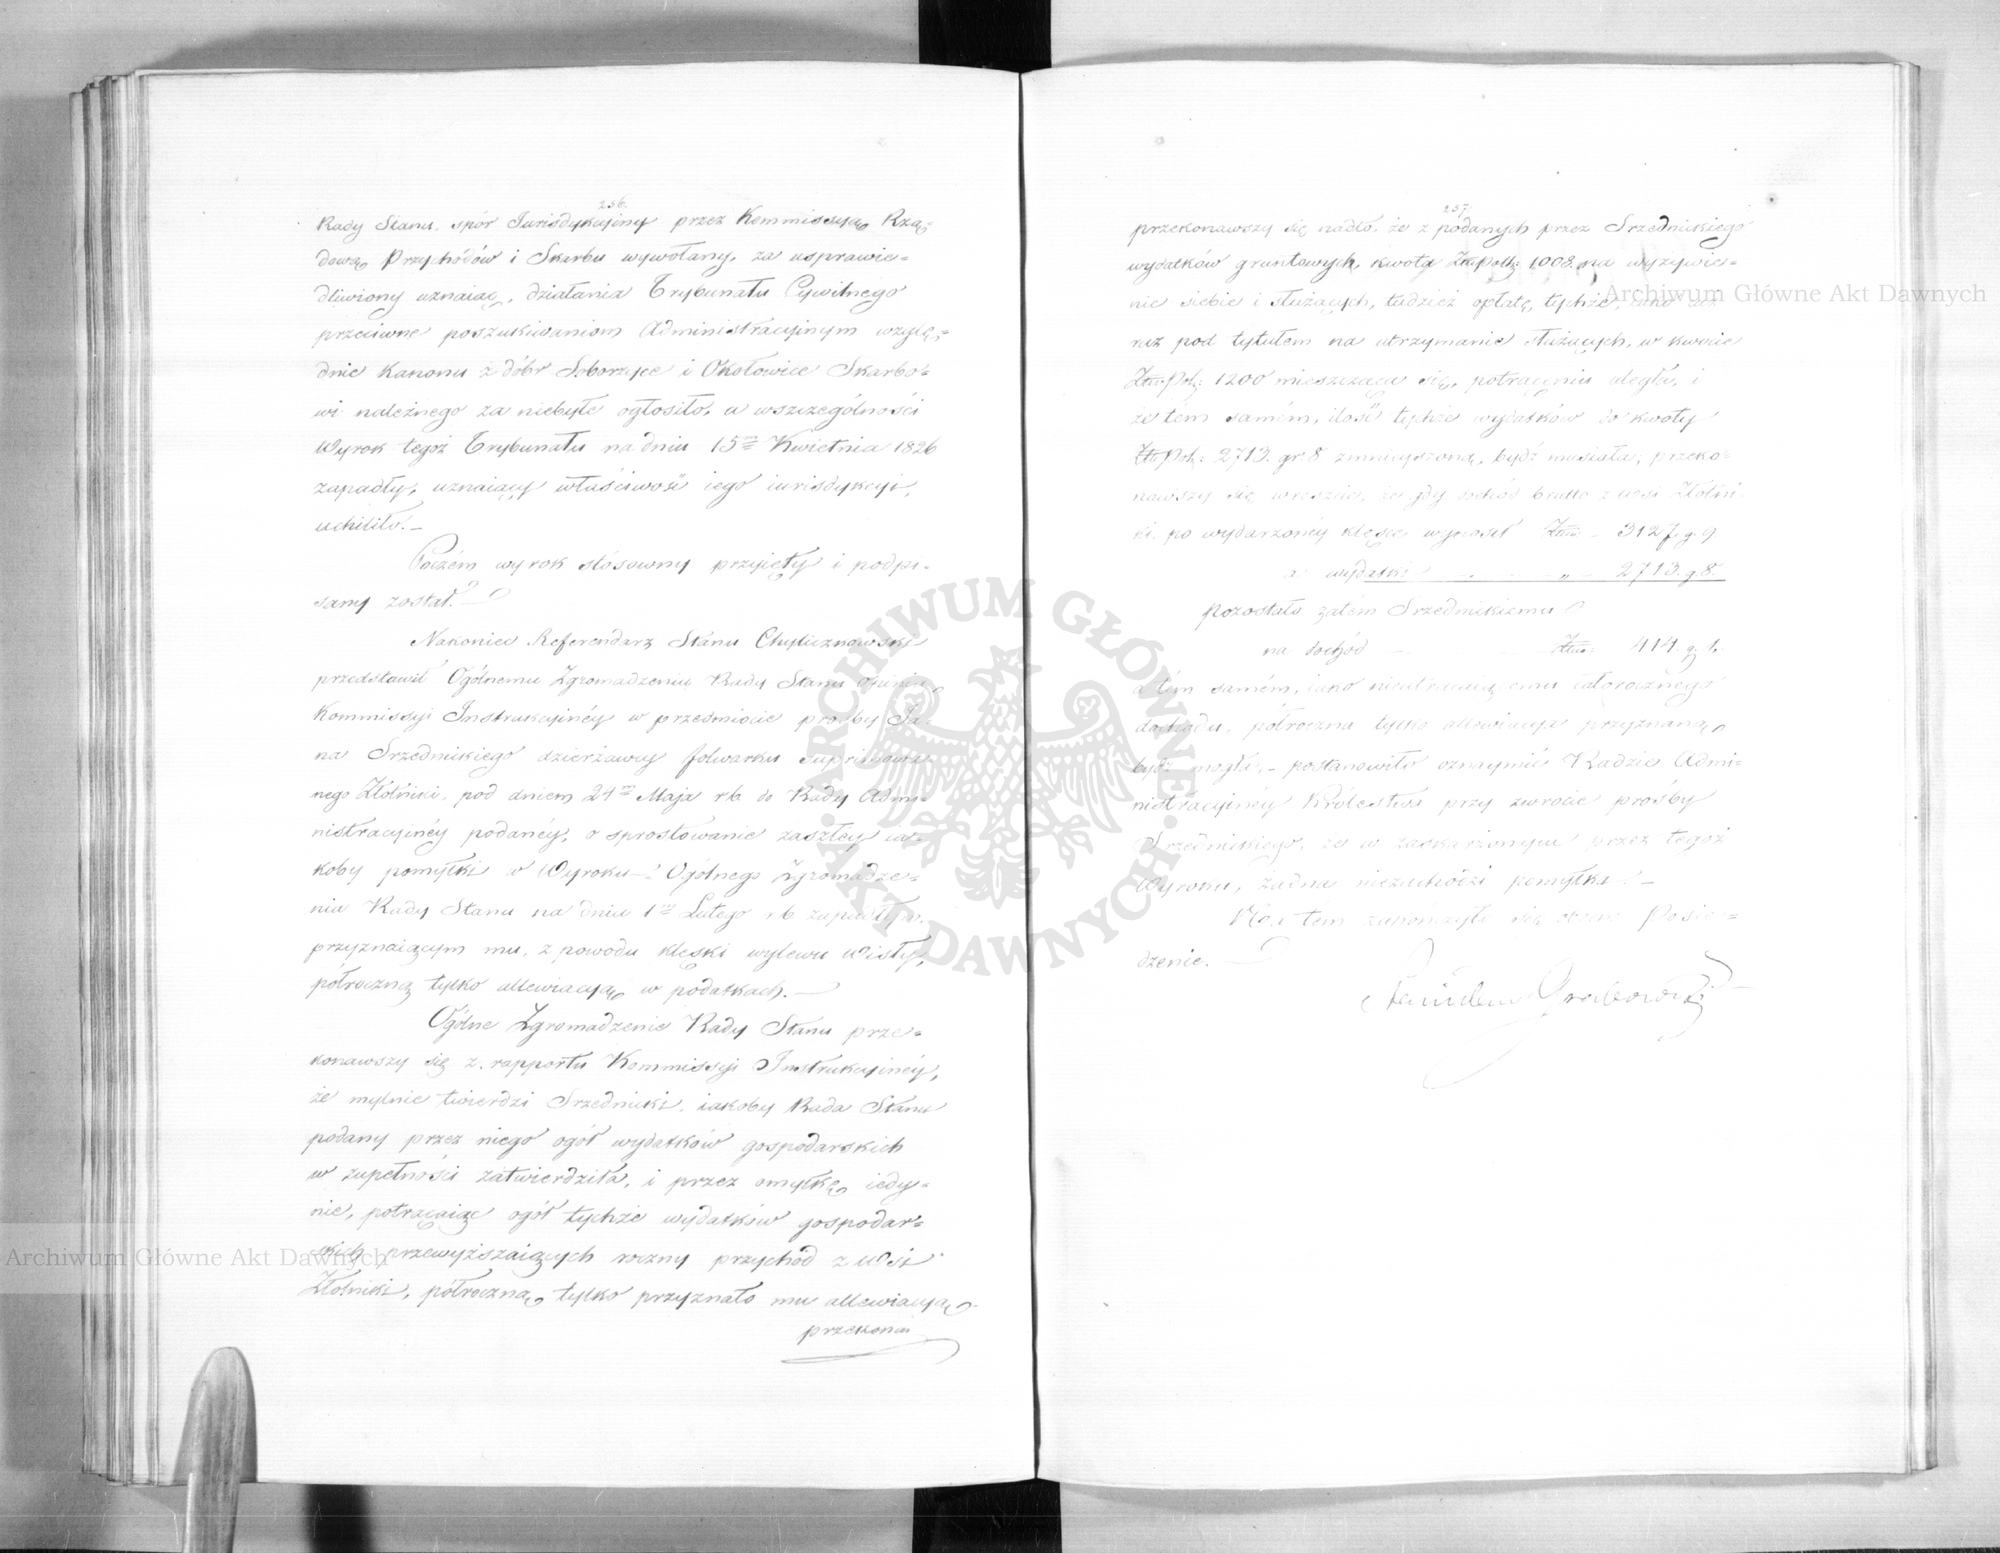 256.
Rady Stanu, spór Jurisdykcyiny przez Kommissyą Rzą=
dową Przychodów i Skarbu wywołany, za usprawie=
dliwiony uznaiąc, działania Trybunału Cywilnego
przeciwne poszukiwaniom Administracyinym wzglę=
dnie Kanonu z dóbr i Okołowice Skarbo=
wi należnego za niebyłe ogłosiło, a wszczególności
Wyrok tegoż Trybunału na dniu 15m Kwietnia 1826
zapadły, uznaiący właściwość iego iurisdykcyi,
uchiliło.—
Poczém wyrok stósowny przyięty i podpi=
sany został.—
Nakoniec Referendarz Stanu Chyliczkowski
przedstawił Ogólnemu Zgromadzeniu Rady Stanu opinią
Kommissyi Instrukcyinéy w przedmiocie prośby Ja=
na Srzednickiego dzierżawcy folwarku
nego Złotniki, pod dniem 24m Maja rb. do Rady Admi=
nistracyinéy podanéy, o sprostowanie zaszłéy ia=
koby pomyłki w Wyroku Ogólnego Zgromadze=
nia Rady Stanu na dniu 1m Lutego rb zapadłym,
przyznaiącym mu, z powodu klęski wylewu Wisły,
półroczną tylko allewiacyą w podatkach.—
Ogólne Zgromadzenie Rady Stanu prze=
konawszy się z rapportu Kommissyi Instrukcyinéy,
że mylnie twierdzi Srzednicki, iakoby Rada Stanu
podany przez niego ogół wydatków gospodarskich
w zupełności zatwierdziła, i przez omyłkę iedy=
nie, potrącaiąc ogół tychże wydatków gospodar=
skich przewyższaiących roczny przychod z wsi
Złotniki, półroczną tylko przyznało mu allewiacyą
przekonaw
257.
przekonawszy się nadto, że z podanych przez Srzednickiego
wydatków gruntowych, kwota Złtpol: 1008. na wyżywie=
nie siebie i służących, tudzież opłatę tychże, iako iuż
raz pod tytułem na utrzymanie służących, w kwocie
Złtpol: 1200 mieszcząca się, potrąceniu uległa, i
że tem samém, ilość tychże wydatków do kwoty
Złtpol: 2713. gr 8 zmnieyszoną, bydź musiała; przeko=
nawszy się wreszcie, że gdy dochód brutto z wsi Złotni=
ki po wydarzonéy klęsce wynosił Złtn - 3127. g. 9
a wydatki - - „ - 2713. g. 8.
pozostało zatém Srzednickiemu
na dochód - Złtn: 414. g. 1.
a tém samém, iako nieutracaiącemu całorocznego
dochodu, półroczna tylko allewiacya przyznaną
bydź mogła,— postanowiło oznaymić Radzie Admi=
nistracyinéy Królestwa przy zwrocie prośby
Srzednickiego, że w zaskarżonym przez tegoż
Wyroku, żadna niezachodzi pomyłka.—
Na tém zakończyło się obecne Posie=
dzenie.—
Stanisław Grabowski
Archiwum Główne Akt Dawnych
Archiwum Główne Akt Dawnych
ARCHIWUM GŁÓWNE AKT DAWNYCH